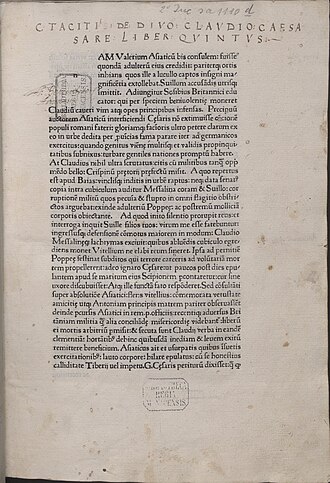 C TACITI DE DIVO CLAVDIO CAESA
SARE LIBER QVINTVS
AM Valerium Asiaticũ bis consulem fuisse
quondã adulterũ eius credidit: pariterq; ortis
inhians quos ille a lucullo captos insigni ma-
gnificẽtia extollebat. Suillum accusãdis utrisq;
imittit. Adiungitur Sosibius Britannici edu
cator: qui per speciem beniuolentię moneret
Claudiũ caueri vim atq; opes principibus infensas. Precipuũ
auctorem Asiaticũ interficiendi Cęsaris nõ extimuisse
populi romani fateri: gloriamq; facioris ultro petere clarum ex
eo in urbe dedita per puicias fama parare iter ad germanicos
exercitus: quando genitus viẽnę multisq; et validis propinqui-
tatibus subnixus: turbare gentiles nationes promptũ haberet.
At Claudius nihil ultra scrutatus citis cũ militibus tanq̃ opp
mẽdo bello: Crispinũ pretorii prefectũ misit. A quo repertus
est apud Baias: vinclisq; inditis in urbẽ raptus: neq; data senat9
copia intra cubiculum auditur Messalina coram & Suillo: cor
ruptionẽ militũ quos pecunia & stupro in omni flagitio obstri-
ctos arguebat exinde adulteriũ Poppeę: ac postremũ mollicia
corporis obiectante. Ad quod uicto silentio prorupit reus: et
interroga inquit Suille filios tuos: virum me esse fatebuntur:
ingressusq; defensionẽ cõmotus maiorem in modum: Claudio
Messalinę q; lachrymas exciuit: quibus abluẽdis cubiculo egre-
diens: monet Vitellium ne elabi reum sineret. Ipsa ad perniciẽ
Poppeę festinat subditis qui terrore carceris ad volũtariã mor
tem propellerent: adeo ignaro Cęsare ut paucos post dies epu-
lantem apud se maritum eius Scipionem: pcontaretur cur sine
uxore discubuisset: Atq; ille functã fato respõderet. Sed cõsultãti
super absolutiõe Asiatici: flens vitellius: cõmemorata vetustate
amicitię utq; Antoniam principis matrem pariter obseruasset:
deinde pcursis Asiatici in rem.p. officiis: recentiq; aduersus Bri
tãniam militia q̃q; alia conciliãdę misericordię videbant: liberũ
ei mortis arbitriũ pmisit: & secuta sunt Claudii verba in eandẽ
clementiã: hortãtib9 dehinc quibusdã inediam & leuem exitũ
remittere beneficium. Asiaticus ait et usurpatis quibus isuetis
exercitationib9: lauto corpore: hilare epulatus: cũ se honestius
calliditate Tiberii uel impetu. G. Cęsaris periturũ dixisset: q̃